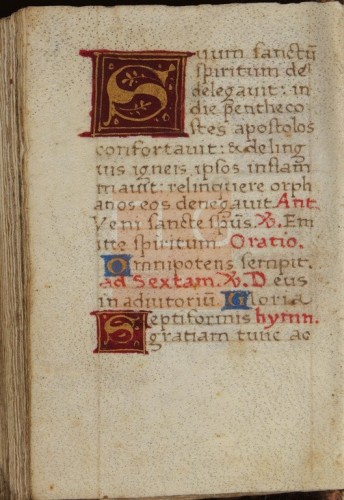 Suum sanctū
spiritum de
delegavit: in
die penthe co
stes apostolos
confortavit: & deling
uis igneis ipsos inflam
mavit: relinquere orph
anos eos denegavit Ant.
Veni sancte spūs ℣. Em
itte spiritum Oratio.
Omnipotens sempit.
ad Sextam. ℣. Deus
in adiutoriū. Gloria
Septiformis hymn.
gratiam tunc ac